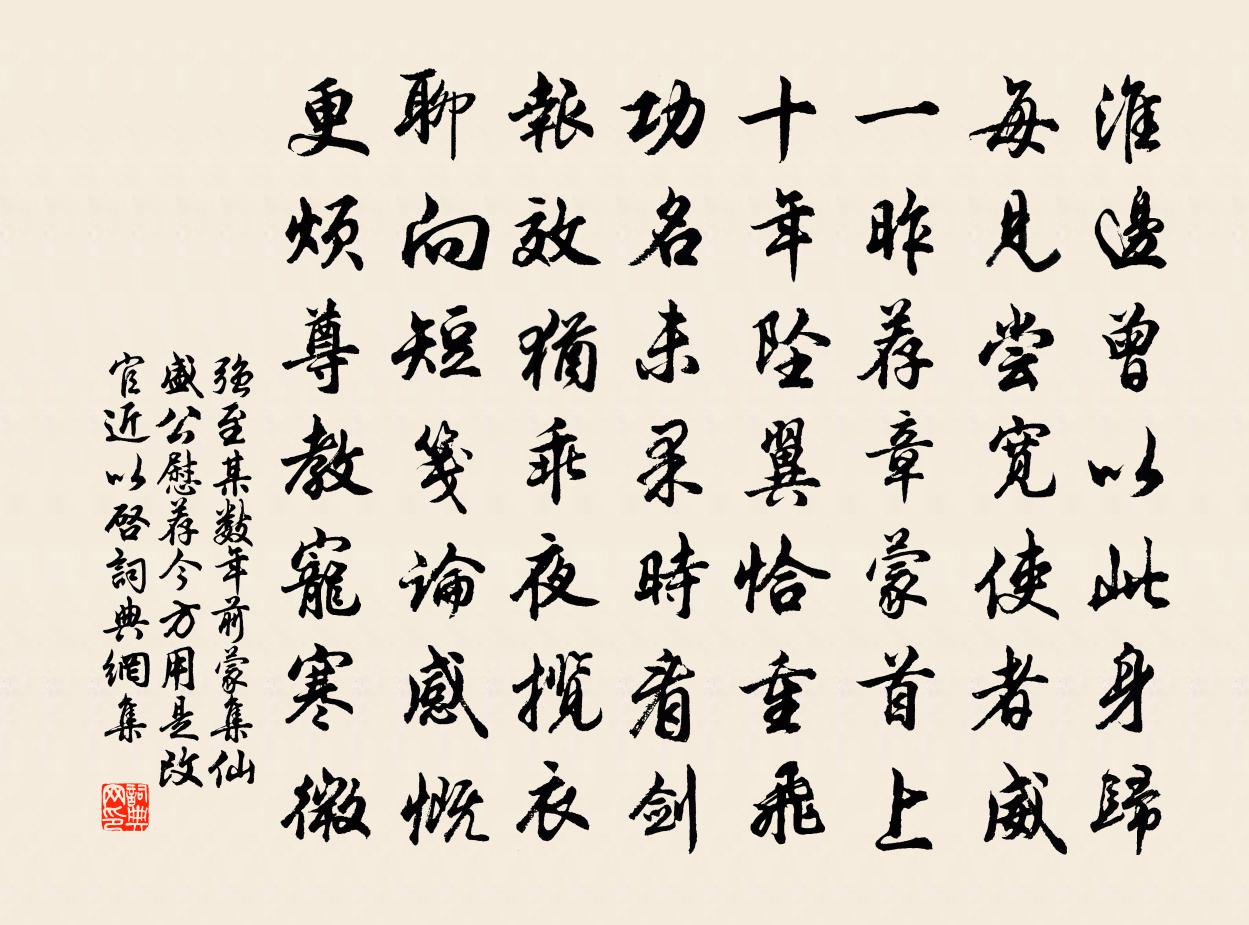 淮邊曾以此身歸
每見嘗寬使者威
一昨荐章蒙首上
十年坠翼恰重飛
功名未果時看劍
報效猶乖夜揽衣
聊向短箋論感慨
更烦尊教寵寒微
强至某数年前蒙集仙
盛公慰荐今方用是改
官近以啓詞典網集
詞典网印